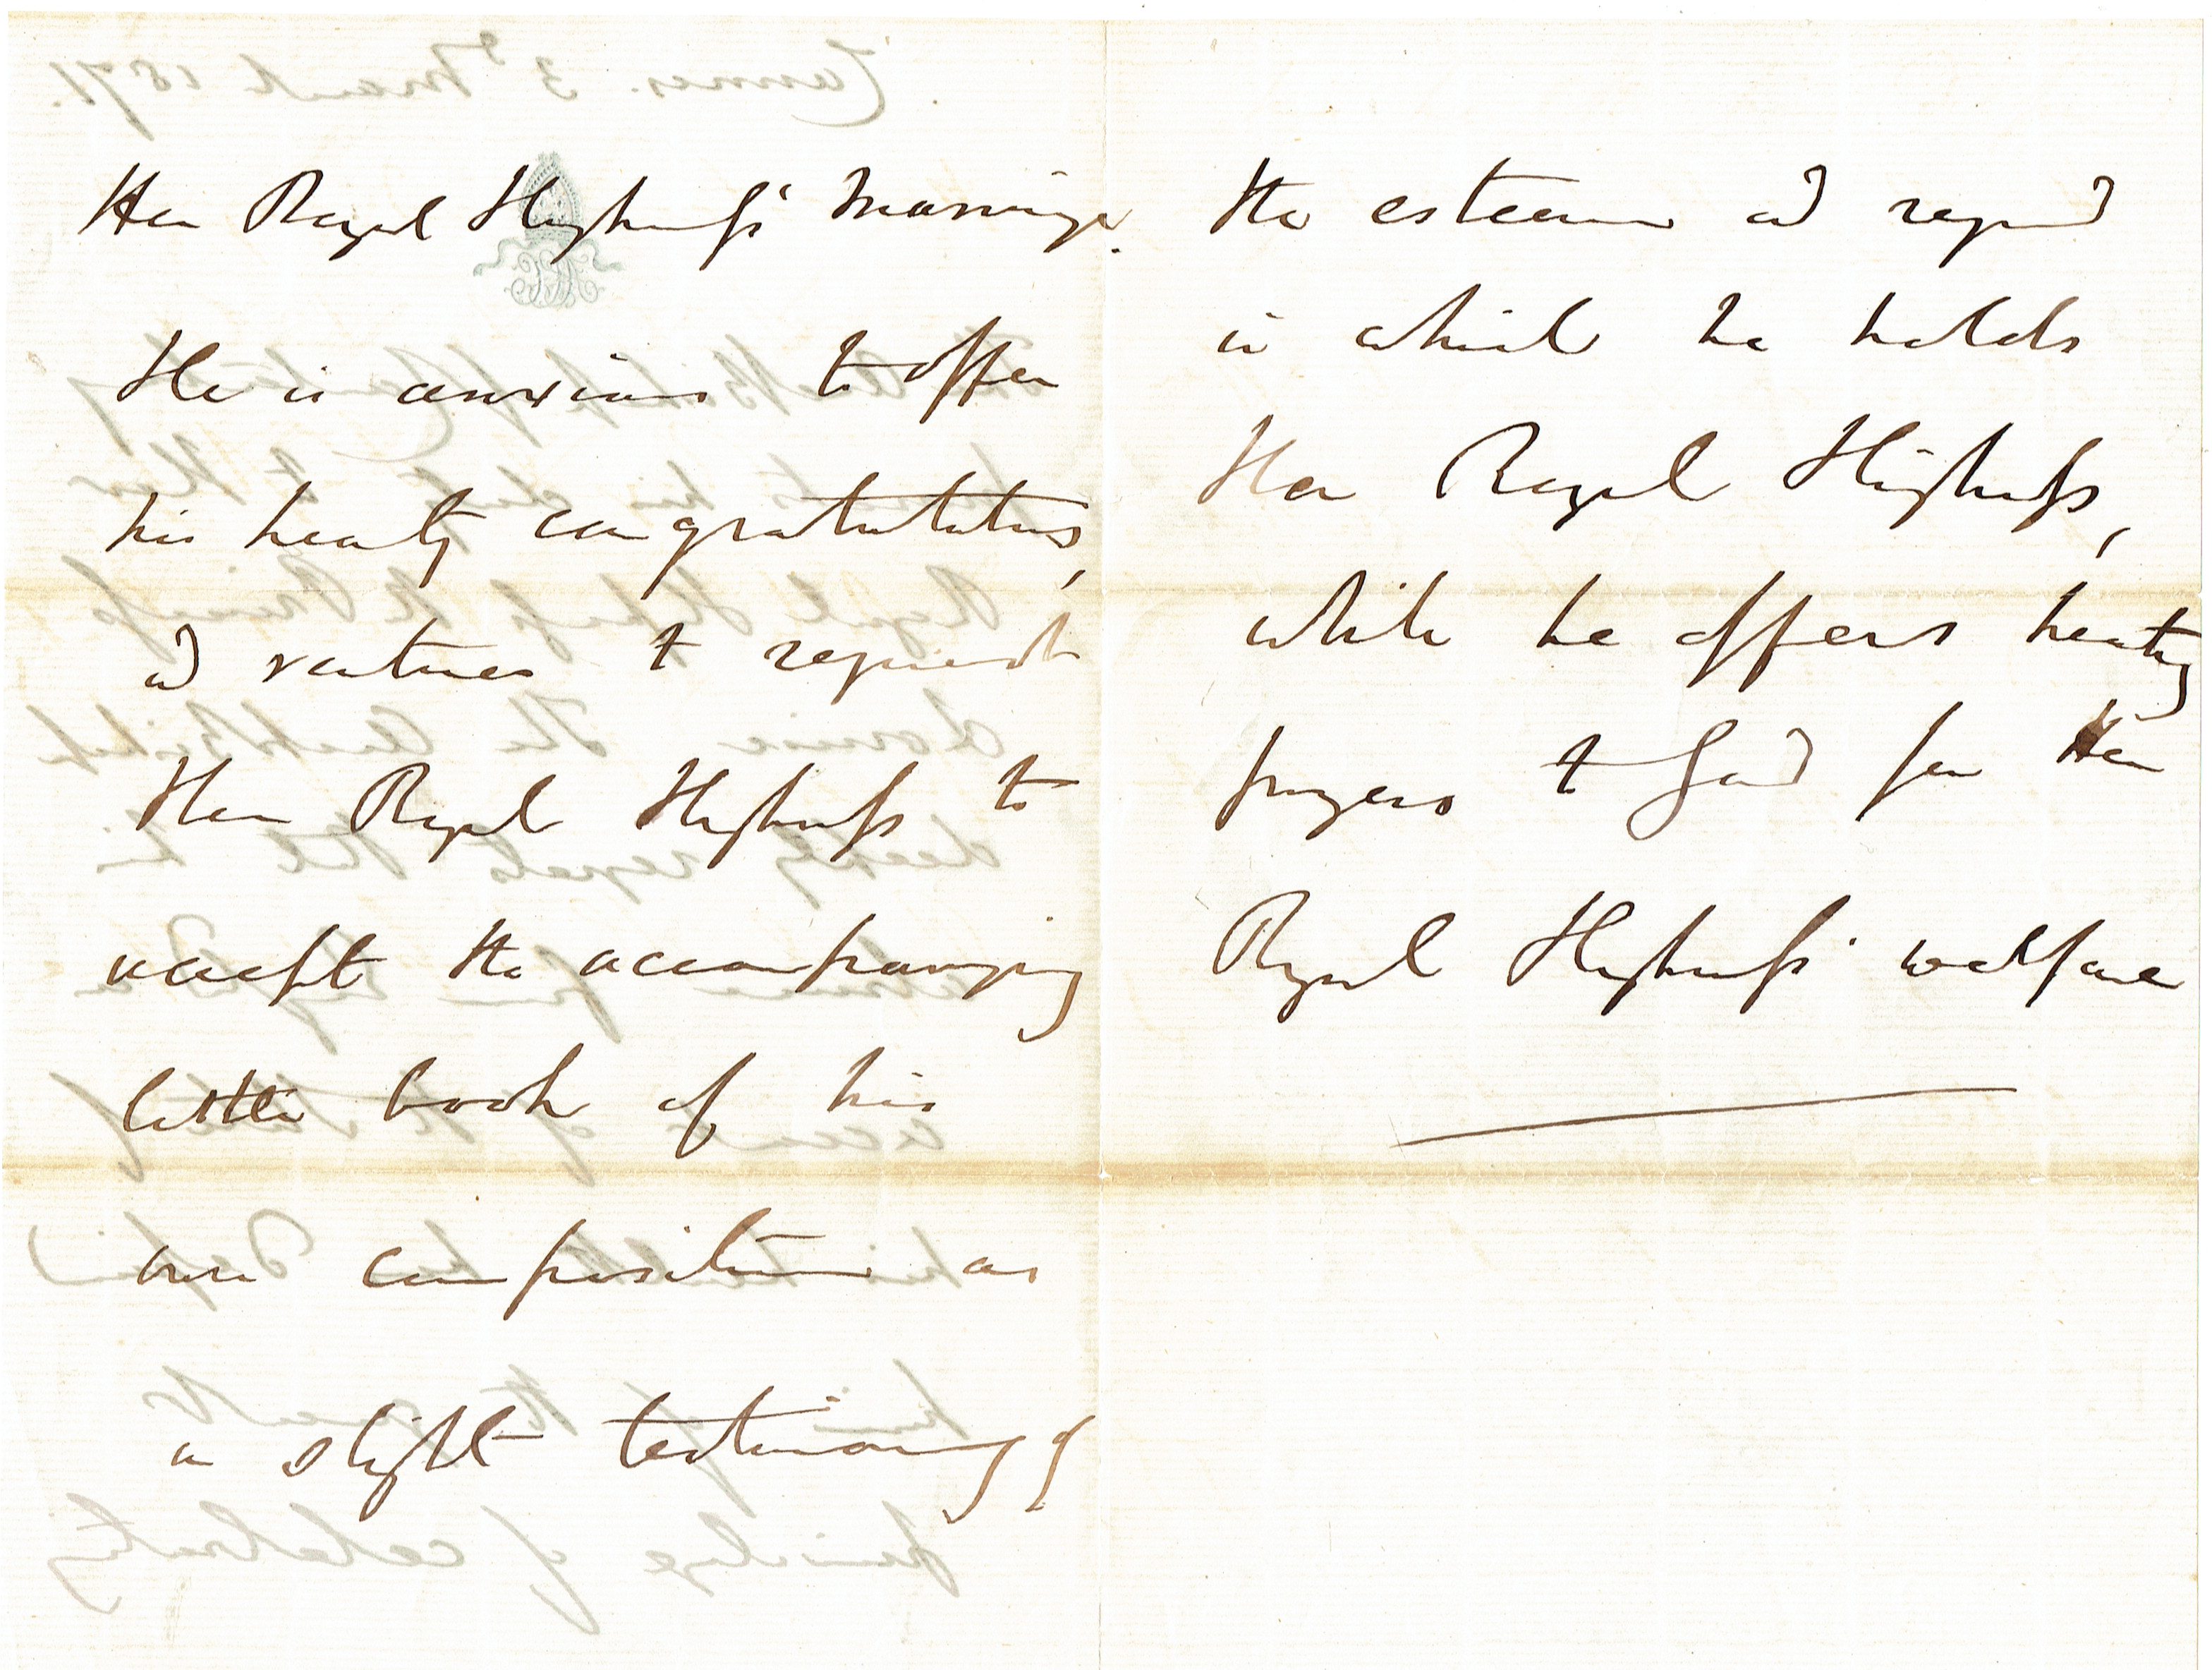 Her Royal Highness' marriage.
He is anxious to offer
his hearty congratulations,
and ventures to request
Her Royal Highness to
accept the accompanying
little book of his
own composition as
a slight testimony of
the esteem and regard
in which he holds
Her Royal Highness,
while he offers hearty
prayers to God for Her
Royal Highness' welfare